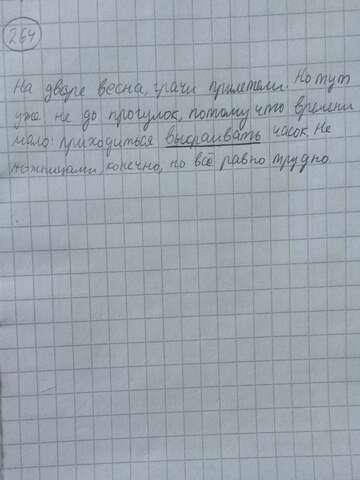 264
На дворе весна, грачи прилетели. Но тут
уже не до прогулок, потому что времени
мало: приходиться выкраивать часок. Не
ножницами, конечно, но всё равно трудно.